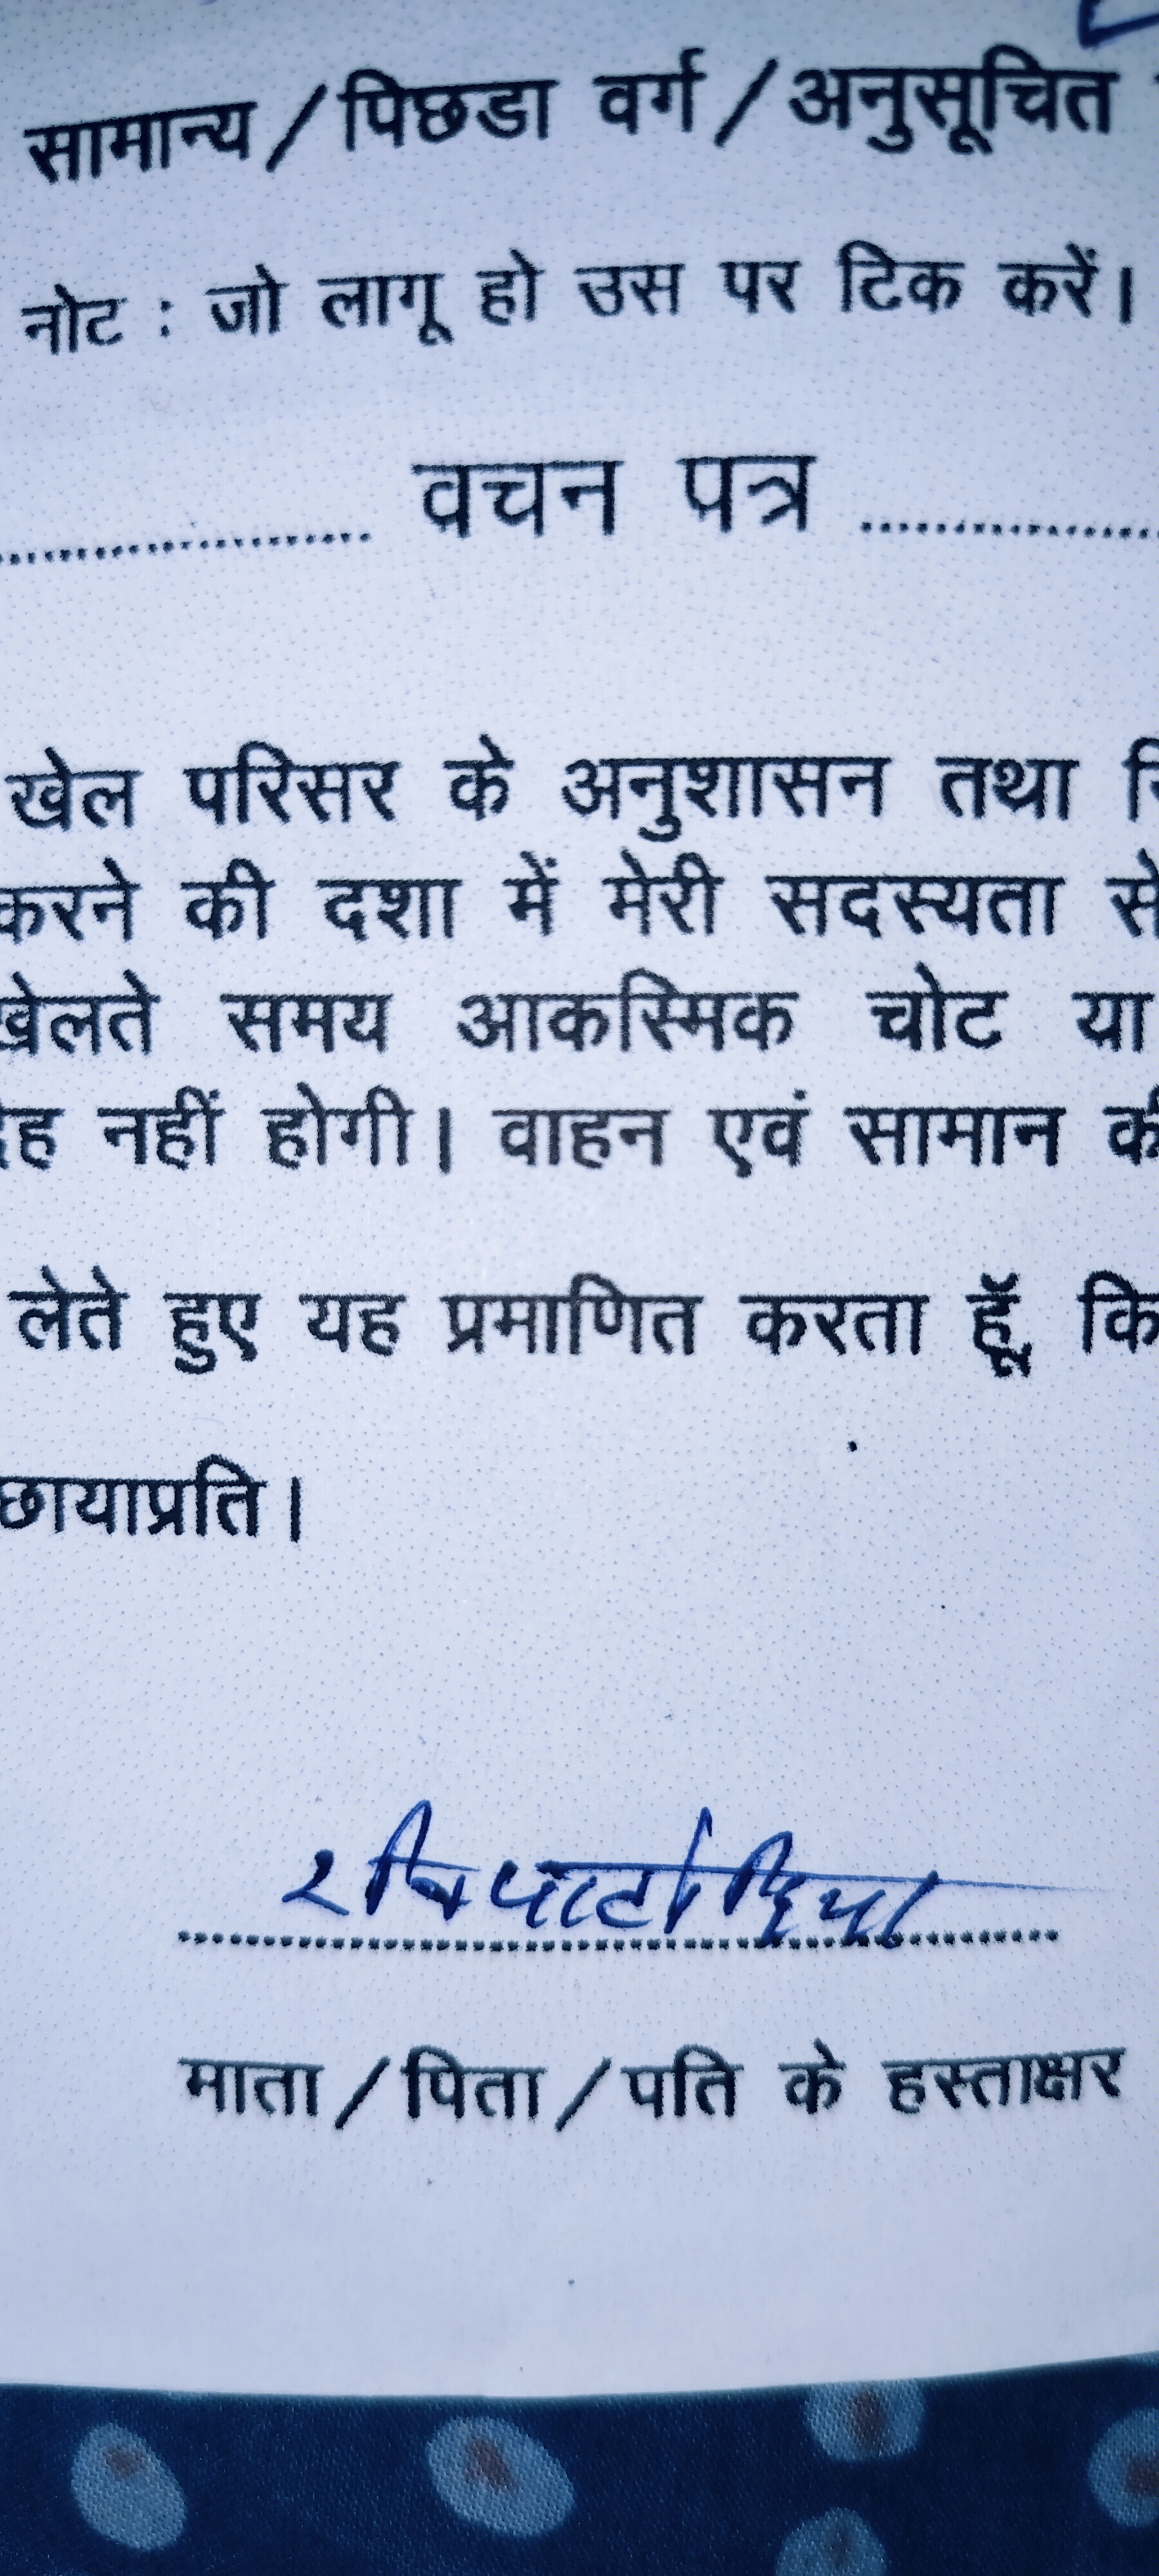 सामान्य/पिछडा वर्ग/अनुसूचित
नोट : जो लागू हो उस पर टिक करें।
वचन पत्र
खेल परिसर के अनुशासन तथा
करने की दशा में मेरी सदस्यता से
खेलते समय आकस्मिक चोट या
नहीं होगी। वाहन एवं सामान की
लेते हुए यह प्रमाणित करता हूँ, कि
छायाप्रति।
रवि पाटोदिया
माता/पिता/पति के हस्ताक्षर